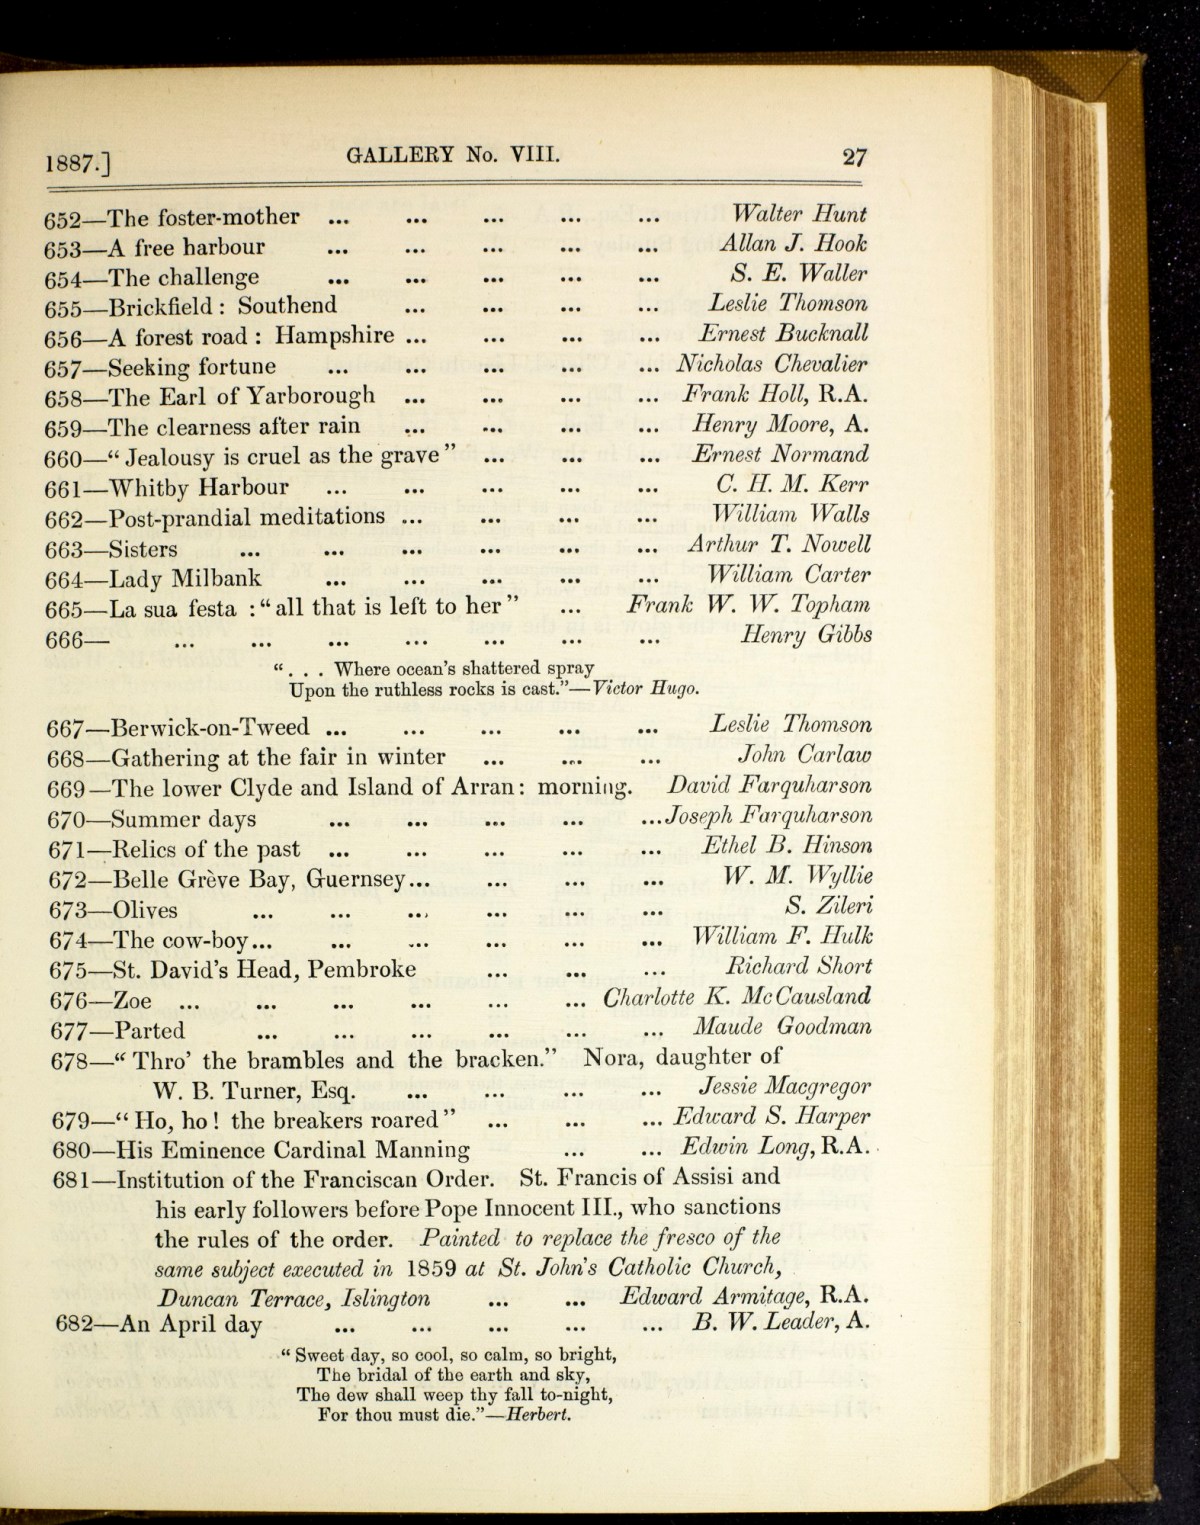 1887.] GALLERY No. VIII. 27
652—The foster-mother ... ... ... ... ... Walter Hunt
653—A free harbour ... ... ... ... ... Allan J. Hook
654—The challenge ... ... ... ... ... S. E. Waller
655—Brickfield : Southend ... ... ... ... Leslie Thomson
656—A forest road : Hampshire ... ... ... ... Ernest Bucknall
657—Seeking fortune ... ... ... ... ... Nicholas Chevalier
658—The Earl of Yarborough ... ... ... ... Frank Holl, R.A.
659—The clearness after rain ... ... ... ... Henry Moore, A.
660—“ Jealousy is cruel as the grave ” ... ... ... Ernest Normand
661—Whitby Harbour ... ... ... ... ... C. H. M. Kerr
662—Post-prandial meditations ... ... ... ... William Walls
663—Sisters ... ... ... ... ... ... Arthur T. Nowell
664—Lady Milbank ... ... ... ... ... William Carter
665—La sua festa : “ all that is left to her ” ... Frank W. W. Topham
666— ... ... ... ... ... ... ... Henry Gibbs
“ . . . Where ocean's shattered spray
Upon the ruthless rocks is cast.”—Victor Hugo.
667—Berwick-on-Tweed ... ... ... ... ... Leslie Thomson
668—Gathering at the fair in winter ... ... ... John Carlaw
669—The lower Clyde and Island of Arran : morning. David Farquharson
670—Summer days ... ... ... ... ... Joseph Farquharson
671—Relics of the past ... ... ... ... ... Ethel B. Hinson
672—Belle Grève Bay, Guernsey... ... ... ... W. M. Wyllie
673—Olives ... ... ... ... ... ... S. Zileri
674—The cow-boy... ... ... ... ... ... William F. Hulk
675—St. David's Head, Pembroke ... ... ... Richard Short
676—Zoe ... ... ... ... ... ... Charlotte K. McCausland
677—Parted ... ... ... ... ... ... Maude Goodman
678—“ Thro' the brambles and the bracken.” Nora, daughter of
W. B. Turner, Esq. ... ... ... ... Jessie Macgregor
679—“ Ho, ho ! the breakers roared ” ... ... ... Edward S. Harper
680—His Eminence Cardinal Manning ... ... Edwin Long, R.A.
681—Institution of the Franciscan Order. St. Francis of Assisi and
his early followers before Pope Innocent III., who sanctions
the rules of the order. Painted to replace the fresco of the
same subject executed in 1859 at St. John's Catholic Church,
Duncan Terrace, Islington ... ... Edward Armitage, R.A.
682—An April day ... ... ... ... ... B. W. Leader, A.
“ Sweet day, so cool, so calm, so bright,
The bridal of the earth and sky,
The dew shall weep thy fall to-night,
For thou must die.”—Herbert.